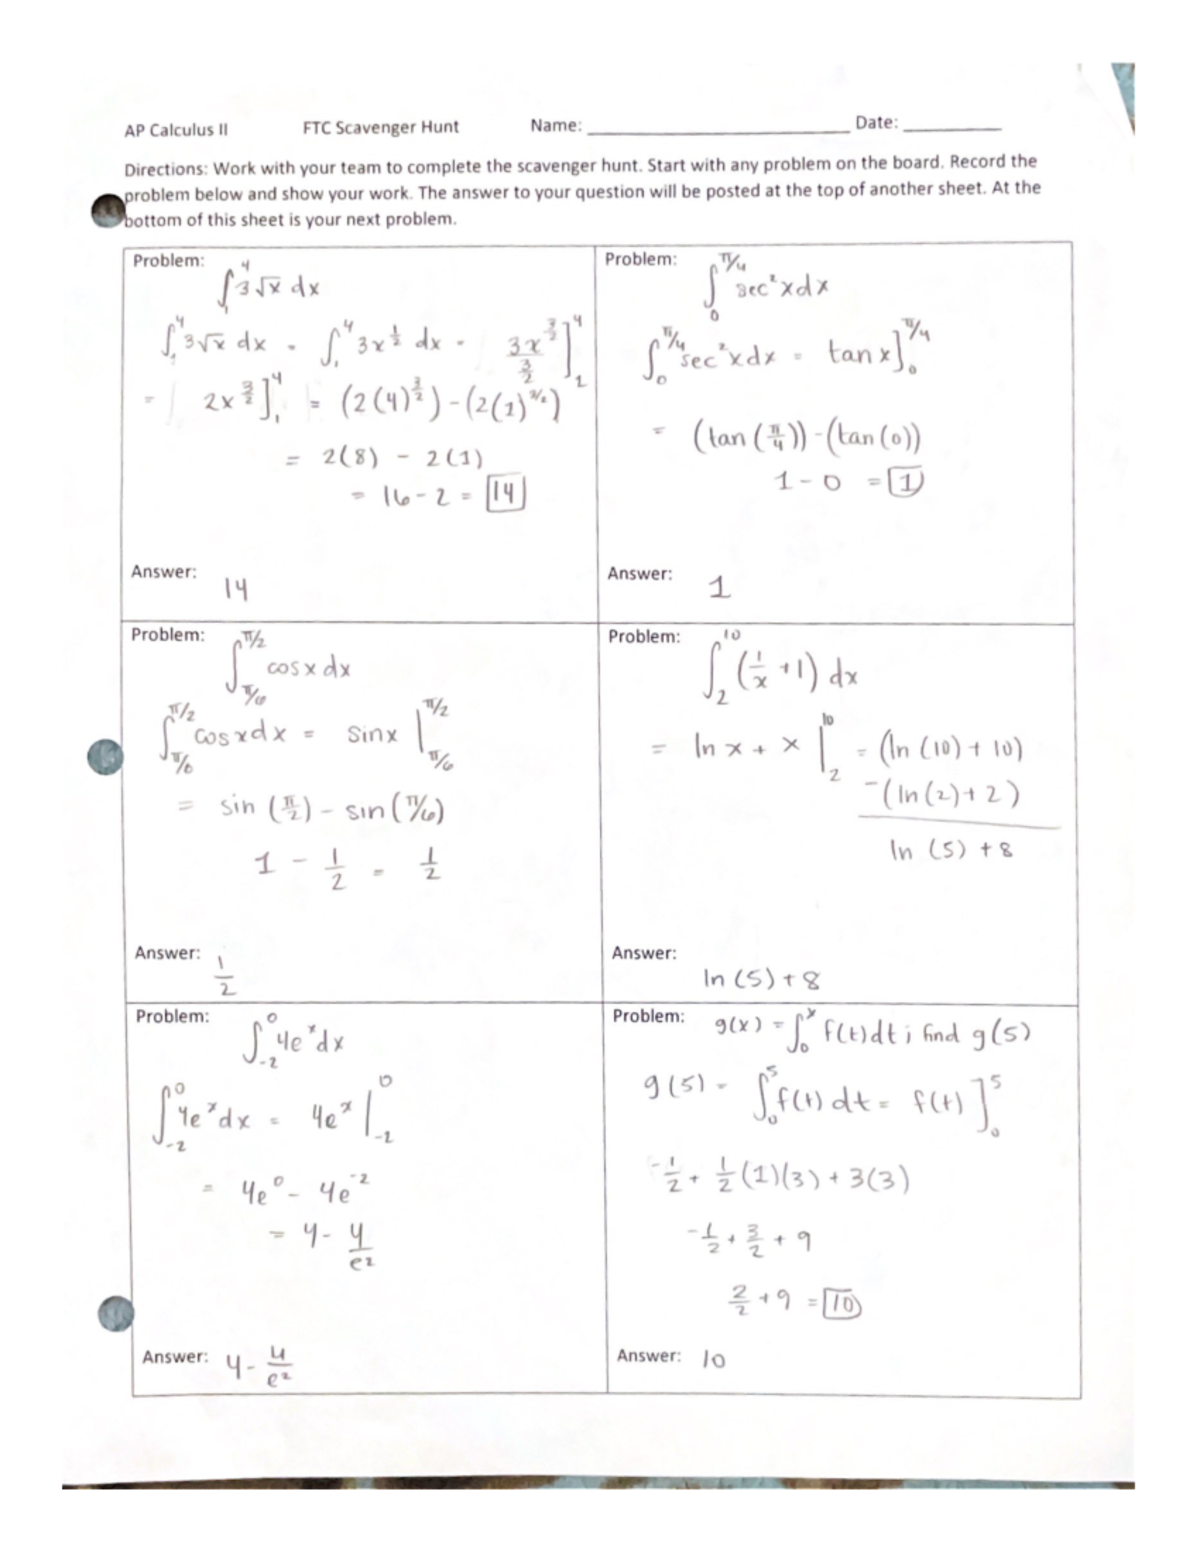 AP Calculus II FTC Scavenger Hunt Name: ____________ Date: ____________
Directions: Work with your team to complete the scavenger hunt. Start with any problem on the board. Record the
problem below and show your work. The answer to your question will be posted at the top of another sheet. At the
bottom of this sheet is your next problem.
Problem:
∫₁⁴ 3√x dx
∫₁⁴ 3√x dx = ∫₁⁴ 3x^(1/2) dx = 3x^(3/2)/(3/2) ]₁⁴
= 2x^(3/2) ]₁⁴ = (2(4)^(3/2)) - (2(1)^(3/2))
= 2(8) - 2(1)
= 16 - 2 = 14
Answer: 14
Problem:
∫₀^(π/4) sec²x dx
∫₀^(π/4) sec²x dx = tan x ]₀^(π/4)
= (tan(π/4)) - (tan(0))
1 - 0 = 1
Answer: 1
Problem:
∫_(π/6)^(π/2) cos x dx
∫_(π/6)^(π/2) cos x dx = sin x |_(π/6)^(π/2)
= sin(π/2) - sin(π/6)
1 - 1/2 = 1/2
Answer: 1/2
Problem:
∫₂¹⁰ (1/x + 1) dx
= ln x + x |₂¹⁰ = (ln(10) + 10)
-(ln(2) + 2)
ln(5) + 8
Answer:
ln(5) + 8
Problem:
∫₋₂⁰ 4eˣ dx
∫₋₂⁰ 4eˣ dx = 4eˣ |₋₂⁰
= 4e⁰ - 4e⁻²
= 4 - 4/e²
Answer: 4 - 4/e²
Problem: g(x) = ∫₀ˣ f(t)dt; find g(5)
g(5) = ∫₀⁵ f(t) dt = f(t) ]₀⁵
-1/2 + 1/2(1)(3) + 3(3)
-1/2 + 3/2 + 9
2/2 + 9 = 10
Answer: 10